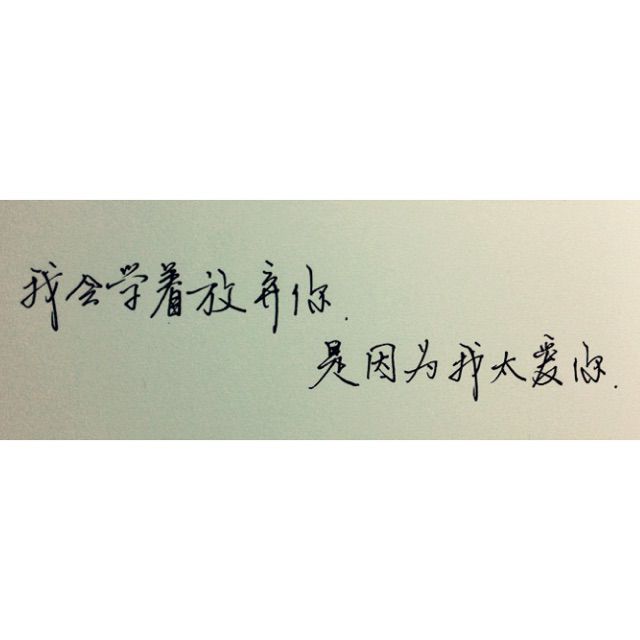 我会学着放弃你.
是因为我太爱你.